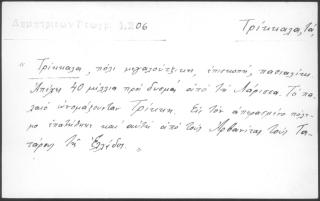 Δημητριέων Γεωγρ. 1.206
Τρίκκαλα, τά,
" Τρίκκαλα, πόλι μεγαλούτζικη, ἐπισκοπή, πασιαλίκι.
Ἀπέχει 40 μίλλια πρὸ δυσμὰς ἀπὸ τὰ Λάρισσα. Τὸ πα-
λαιὸ ὠνομάζουνταν Τρίκκη. Εἰς τὸν ἀπερασμένο πόλε-
μο ἐπατήθηκε καὶ αὐτὴ ἀπὸ τοὺς Ἀρβανίτας τοὺς Τα-
τάρους τῆς Ἑλλάδος.